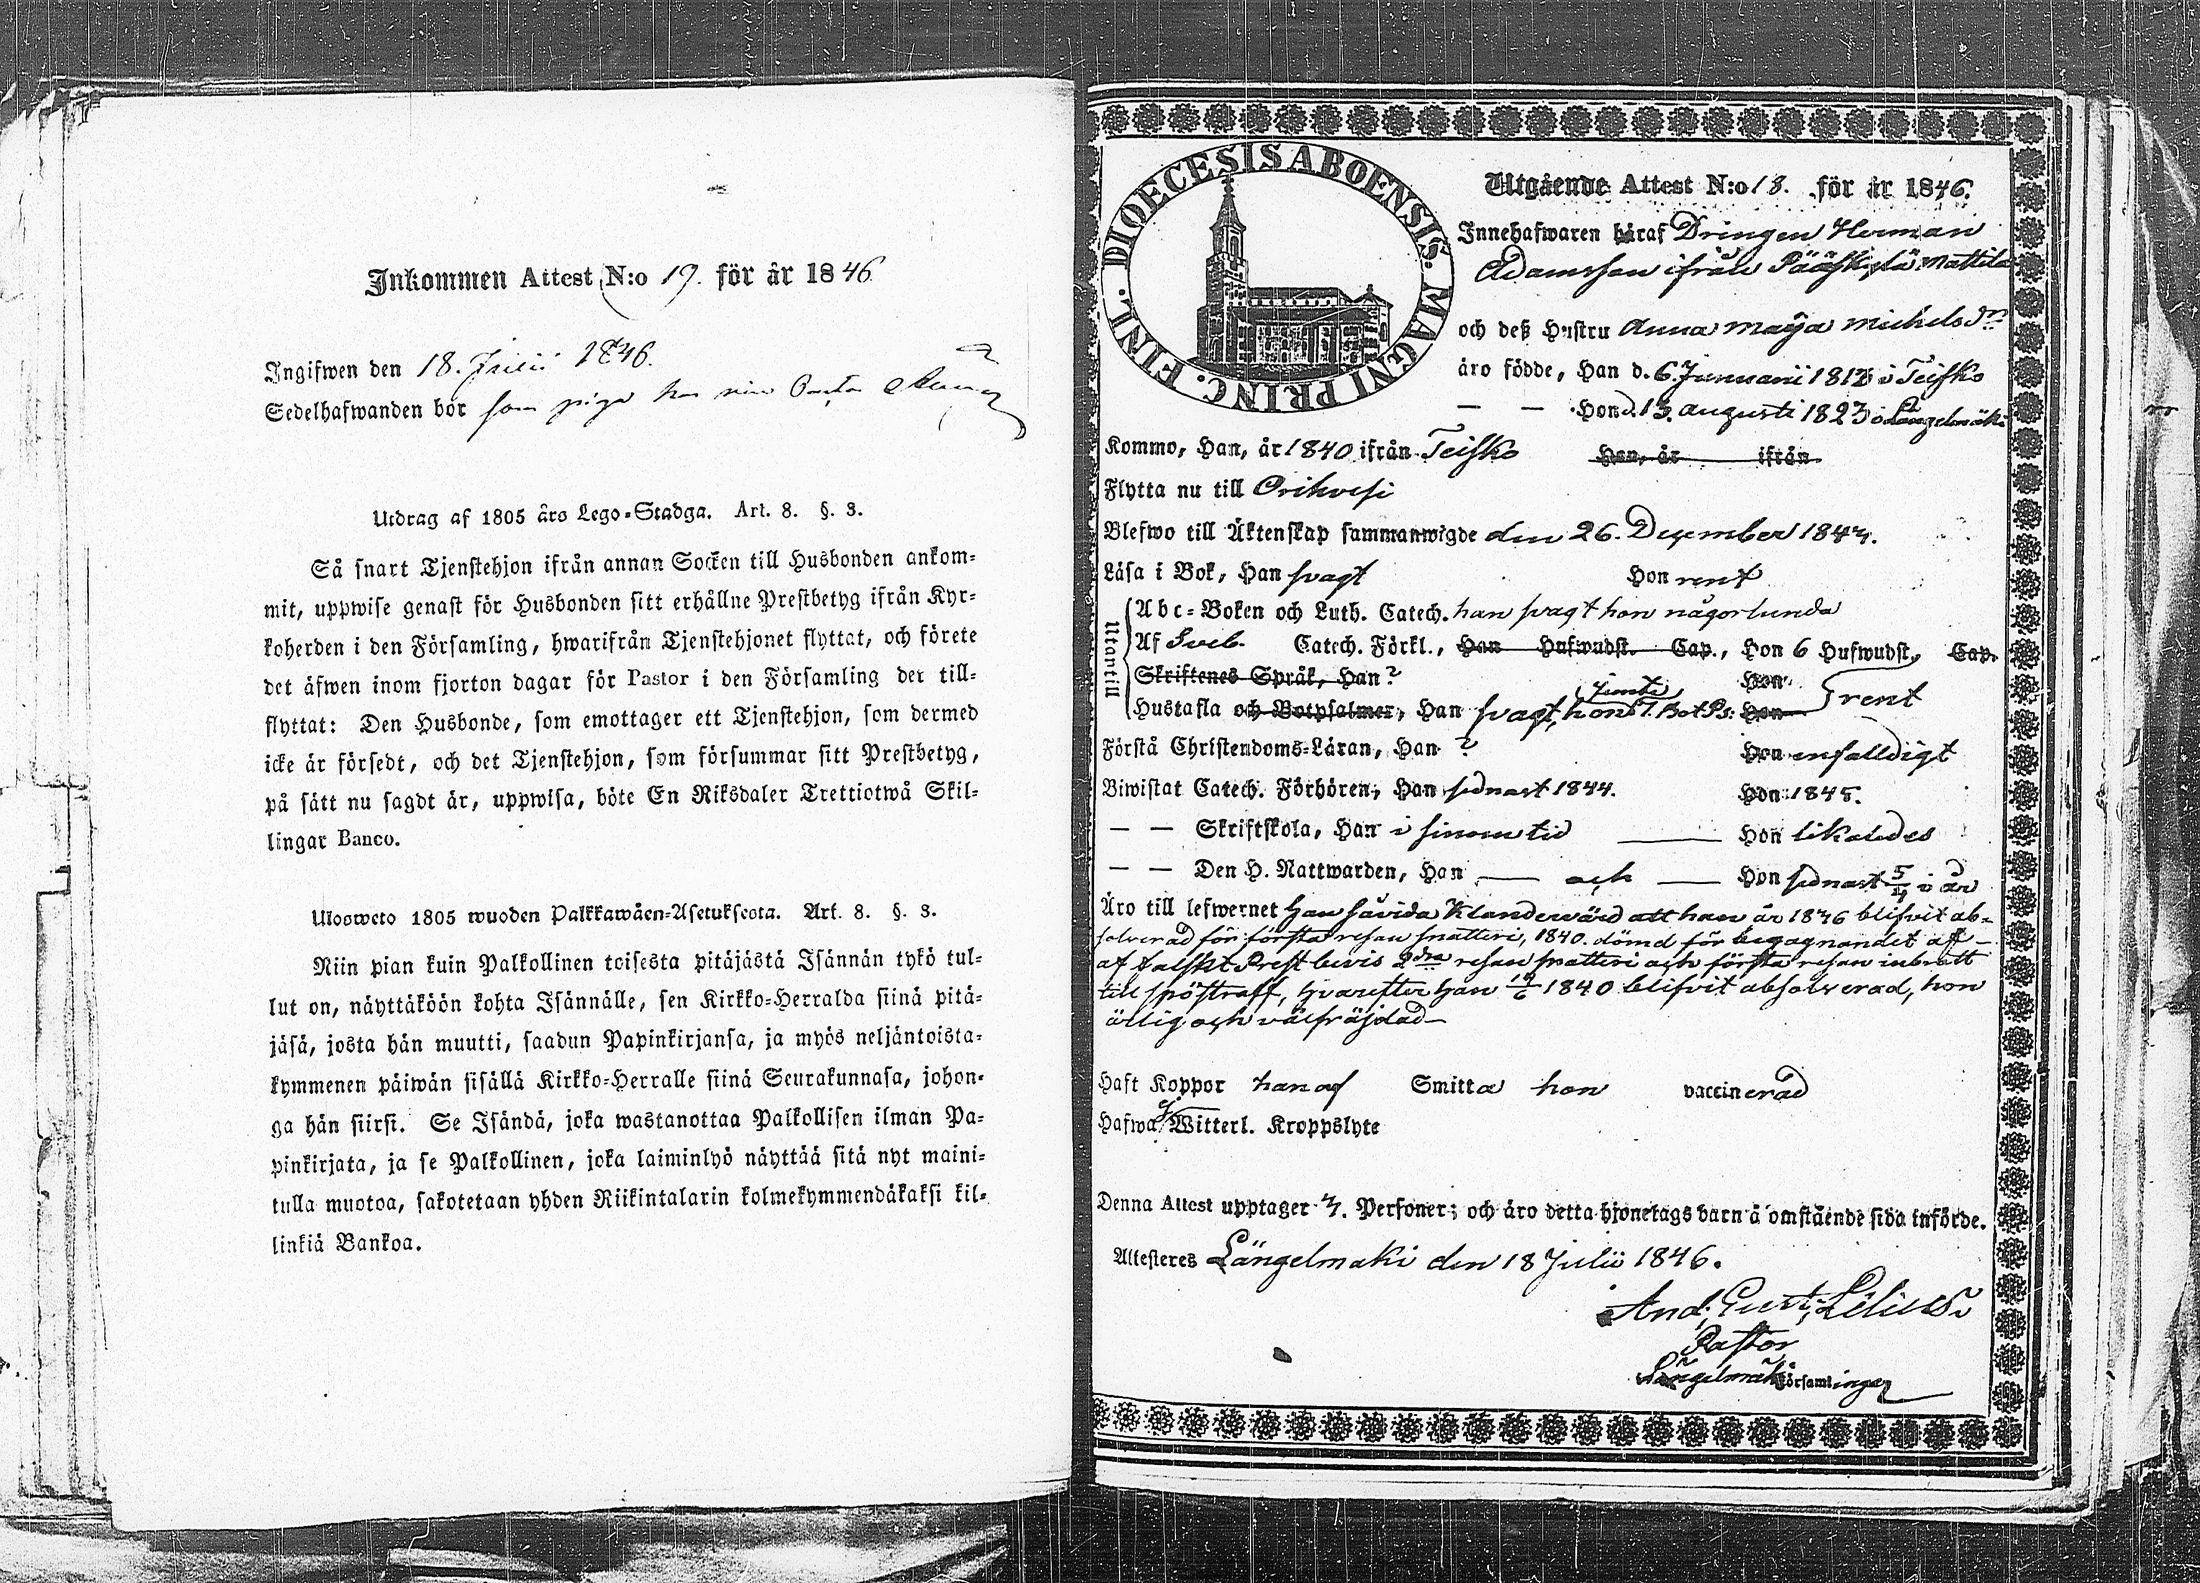 Inkommen Attest N:o 19. för år 1846
Ingifwen den 18. Julii 1846.
Sedelhafwanden bor som piga hos
Utdrag af 1805 års Lego-Stadga. Art. 8. §. 3.
Så snart Tjenstehjon ifrån annan Socken till Husbonden ankom-
mit, uppwise genast för Husbonden sitt erhållne Prestbetyg ifrån Kyr-
koherden i den Församling, hwarifrån Tjenstehjonet flyttat, och förete
det äfwen inom fjorton dagar för Pastor i den Församling der till-
flyttat: Den Husbonde, som emottager ett Tjenstehjon, som dermed
icke är försedt, och det Tjenstehjon, som försummar sitt Prestbetyg,
på sätt nu sagdt är, uppwisa, böte En Riksdaler Trettiotwå Skil-
lingar Banco.
Ulosweto 1805 wuoden Palkkawäen-Asetuksesta. Art. 8. §. 3.
Niin pian kuin Palkollinen toisesta pitäjästä Isännän tykö tul-
lut on, näyttäköön kohta Isännälle, sen Kirkko-Herralda siinä pitä-
jäsä, josta hän muutti, saadun Papinkirjansa, ja myös neljäntoista-
kymmenen päiwän sisällä Kirkko-Herralle siinä Seurakunnasa, johon-
ga hän siirsi. Se Isändä, joka wastanottaa Palkollisen ilman Pa-
pinkirjata, ja se Palkollinen, joka laiminlyö näyttää sitä nyt maini-
tulla muotoa, sakotetaan yhden Riikintalarin kolmekymmendäkaksi kil-
linkiä Bankoa.
DIOECESIS ABOENSIS. MAGNI PRINC. FINL.
Utgående Attest N:o 18. för år 1846.
Innehafwaren häraf Drängen Herman
Adamsson ifrån Pääskylä Mattila
och deß Hustru Anna Maija Michelsdr
äro födde, Han d. 6. Januarii 1812 i Teisko
— — Hon d. 13. Augusti 1823 i Längelmäki
Kommo, Han, år 1840 ifrån Teisko Hon, år ifrån
Flytta nu till Orihvesi
Blefwo till Äktenskap sammanwigde den 26. December 1844.
Läsa i Bok, Han svagt Hon rent
Utantill
Abc-Boken och Luth. Catech. han svagt hon någorlunda
Af Sveb. Catech. Förkl., Han Hufwudst. Cap., Hon 6 Hufwudst., Cap.
Skriftenes Språk, Han ? Hon
Hustafla och Botpsalmer, Han svagt, hon jemte 7. Bot Ps: Hon rent
Förstå Christendoms-Läran, Han ? Hon enfalldigt
Biwistat Catech. Förhören, Han sednast 1844. Hon 1845.
— — Skriftskola, Han i sinom tid — Hon likaledes
— — Den H. Nattwarden, Han — och — Hon sednast 5/4 i år
Äro till lefwernet Han såvida klandervärd att han år 1846 blifvit ab-
solverad för första resan snatteri, 1840. dömd för begagnandet af
af falskt Prest bevis 2dra resan snatteri och första resan inbrott
till spöstraff, hvarefter han 14/6 1840 blifvit absolverad, hon
ärlig och välfräjdad
Haft Koppor han af Smitta hon vaccinerad
Hafwa ej Witterl. Kroppslyte
Denna Attest upptager 4. Personer; och äro detta hjonelags barn å omstående sida införde.
Attesteres Längelmäki den 18 Julii 1846.
And. Gust. Lilius
Pastor
Längelmäki Församlingar